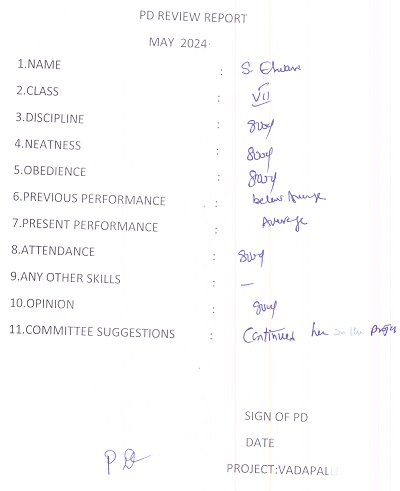 PD REVIEW REPORT
MAY 2024
1.NAME : S.
2.CLASS : VII
3.DISCIPLINE : good
4.NEATNESS : good
5.OBEDIENCE : good
6.PREVIOUS PERFORMANCE : below Average
7.PRESENT PERFORMANCE : Average
8.ATTENDANCE : good
9.ANY OTHER SKILLS : –
10.OPINION : good
11.COMMITTEE SUGGESTIONS : Continued her in the
SIGN OF PD
DATE
PD
PROJECT:VADAPAL